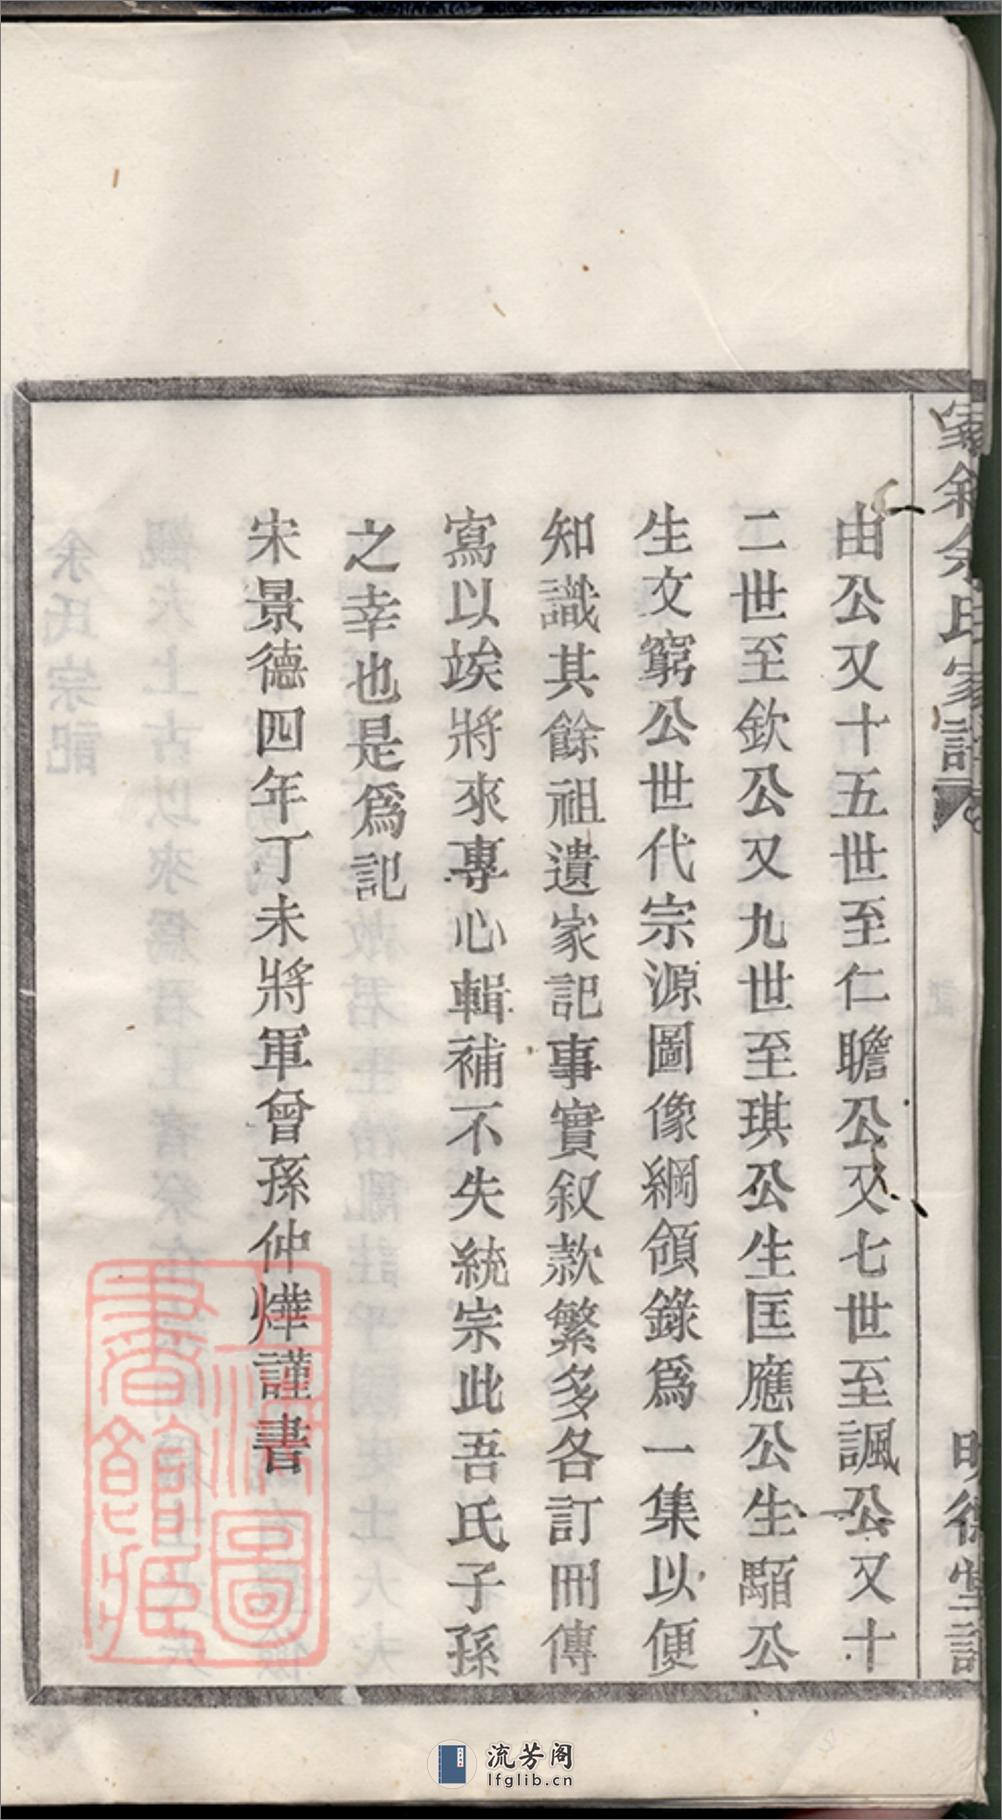 由公又十五世至仁瞻公又七世至諷公又十
二世至欽公又九世至琪公生匡應公生頤公
生文窮公世代宗源圖像綱領錄為一集以便
知識其餘祖遺家記事實叙款繁多各訂冊傳
寫以竢將來專心輯補不失統宗此吾氏子孫
之幸也是為記
宋景德四年丁未將軍曾孫仲燁謹書
余氏家譜
明德堂
圖
書館藏
流芳阁
lfglib.cn